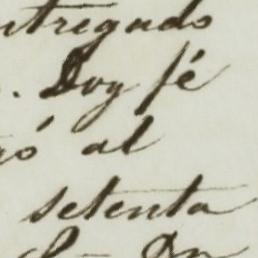 ntregado
. Doy fé
ó al
setenta